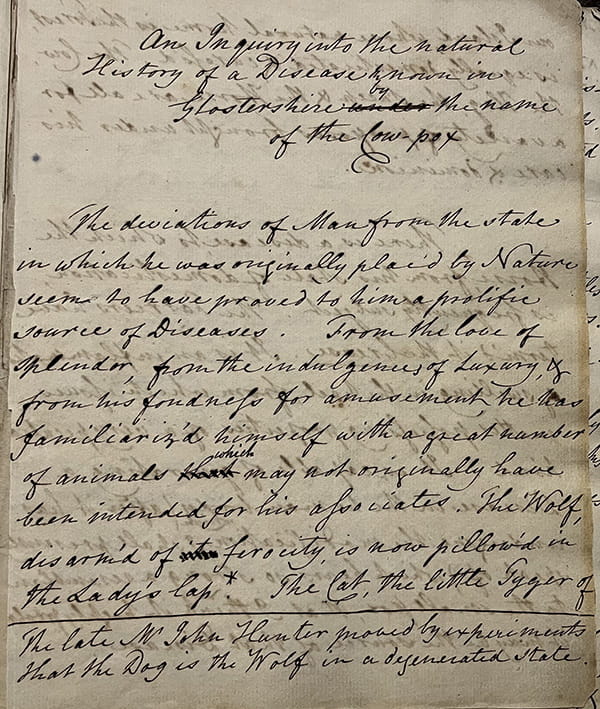 An Inquiry into the natural
History of a Disease known in
by
Glostershire under the name
of the Cow-pox
The deviations of Man from the state
in which he was originally plac'd by Nature
seem to have proved to him a prolific
source of Diseases. From the love of
splendor, from the indulgences of Luxury, &
from his fondneſs for amusement, he has
familiariz'd himself with a great number
which
of animals that may not originally have
been intended for his aſsociates. The Wolf,
disarm'd of its ferocity, is now pillow'd in
the Lady's lap.* The Cat, the little Tyger of
The late Mr John Hunter proved by experiments
that the Dog is the Wolf in a degenerated state.